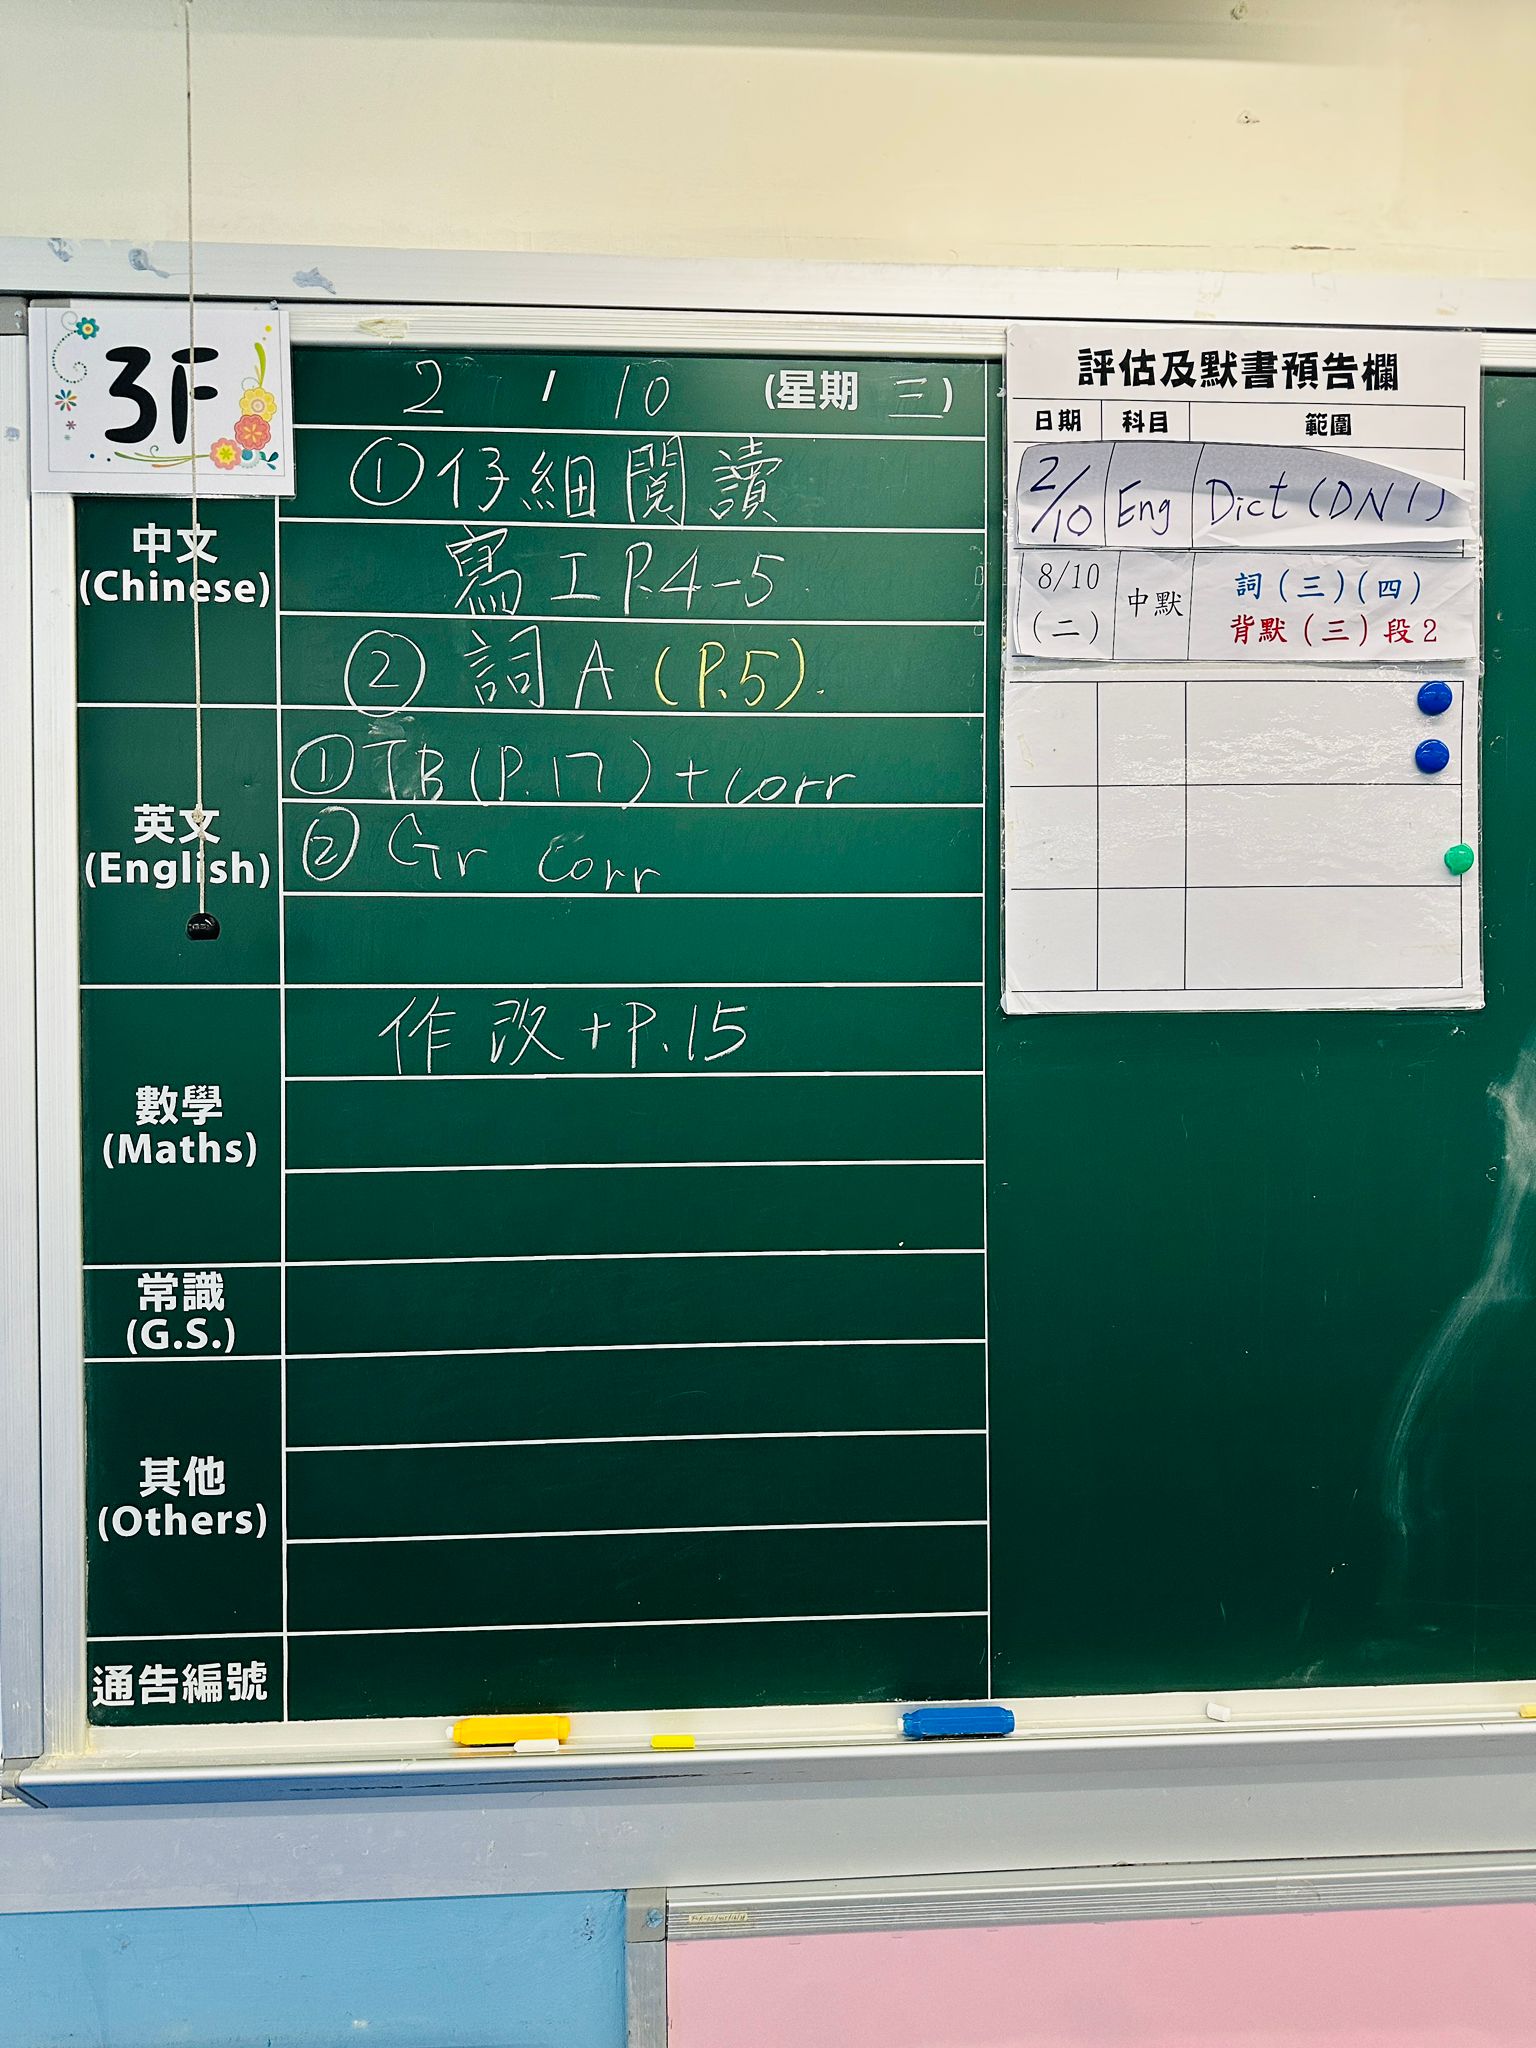 3F
2 / 10 (星期 三)
中文
(Chinese)
①仔細閱讀
寫工P.4-5
② 詞 A (P.5).
英文
(English)
① TB (P.17) + corr
② Gr corr
數學
(Maths)
作改+P.15
常識
(G.S.)
其他
(Others)
通告編號
評估及默書預告欄
日期 科目 範圍
2/10 Eng Dict (DN1)
8/10
(二) 中默 詞(三)(四)
背默(三)段2